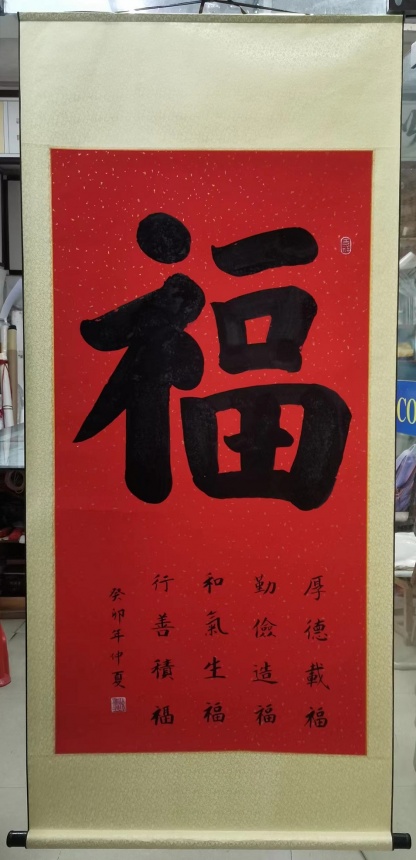 福
厚德載福
勤儉造福
和氣生福
行善積福
癸卯年仲夏
CO